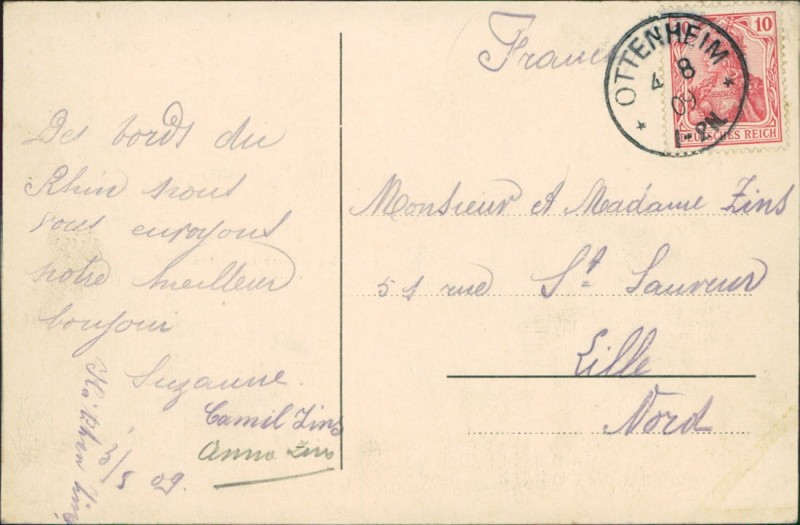 Des bords du
Rhin nous
vous envoyons
notre meilleur
bonjour
Suzanne.
Camil Zins
Anna Zins
3/8 09.
France
OTTENHEIM
4 8
09
1-2N.
10
DEUTSCHES REICH
Monsieur et Madame Zins
51 rue St Sauveur
Lille
Nord